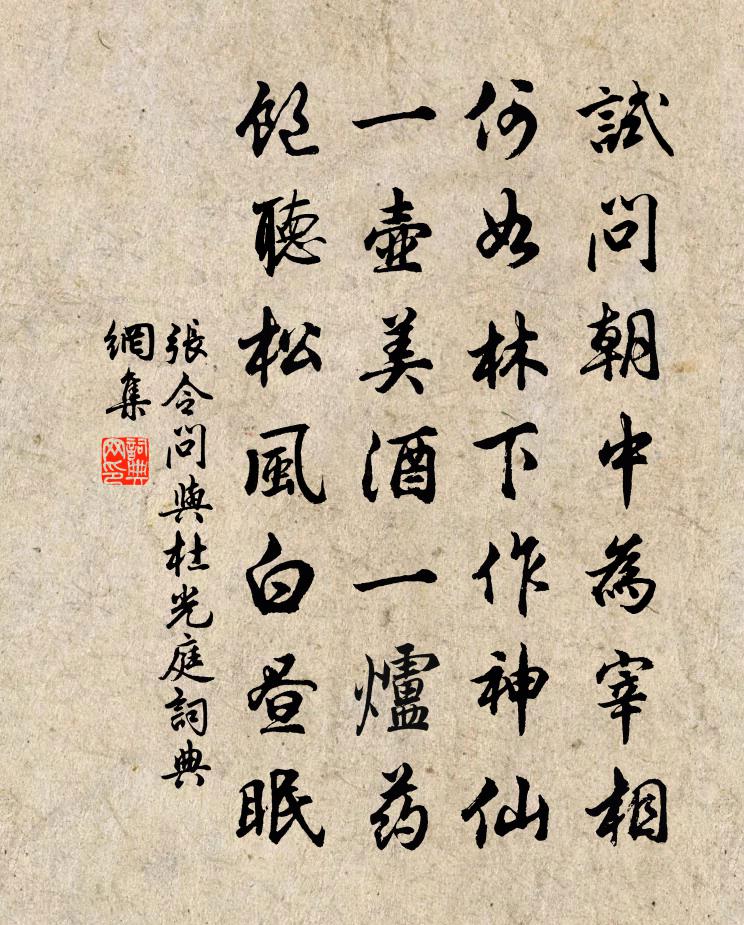 試問朝中為宰相
何如林下作神仙
一壺美酒一爐药
飽聽松風白晝眠
張令問與杜光庭詞典
網集
詞典
网印